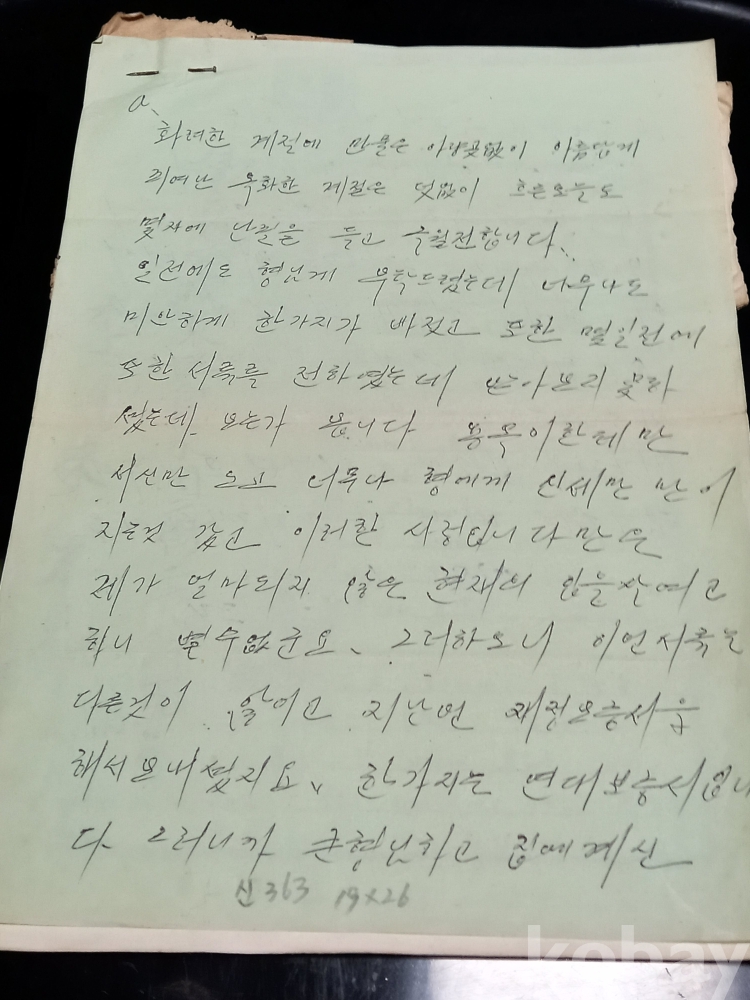 a.
화려한 계절에 만물은 아랑곳없이 아름답게
피여난 욱화한 계절은 덧없이 흐른오늘도
몇자에 난필을 들고 전합니다.
일전에도 형님게 부탁드렸는데 너무나도
미안하게 한가지가 빠젔고 또한 몇일전에
또한 서류를 전하였는데 받아보리 못하
셨는데 보는가 봅니다 이한테만
서신만 오고 너무나 형에게 신세만 만이
지는것 갔고 이러한 사정입니다만은
제가 얼마되지 않은 현재의 있을라여고
하니 별수없군요、 그러하오니 이번서류는
다른것이 않이고 지난번 재정보증서을
해서보내셨지요、 한가지는 연대보증서입니
다. 그러니까 큰형님하고 집에계신
신363 19x26
kobay